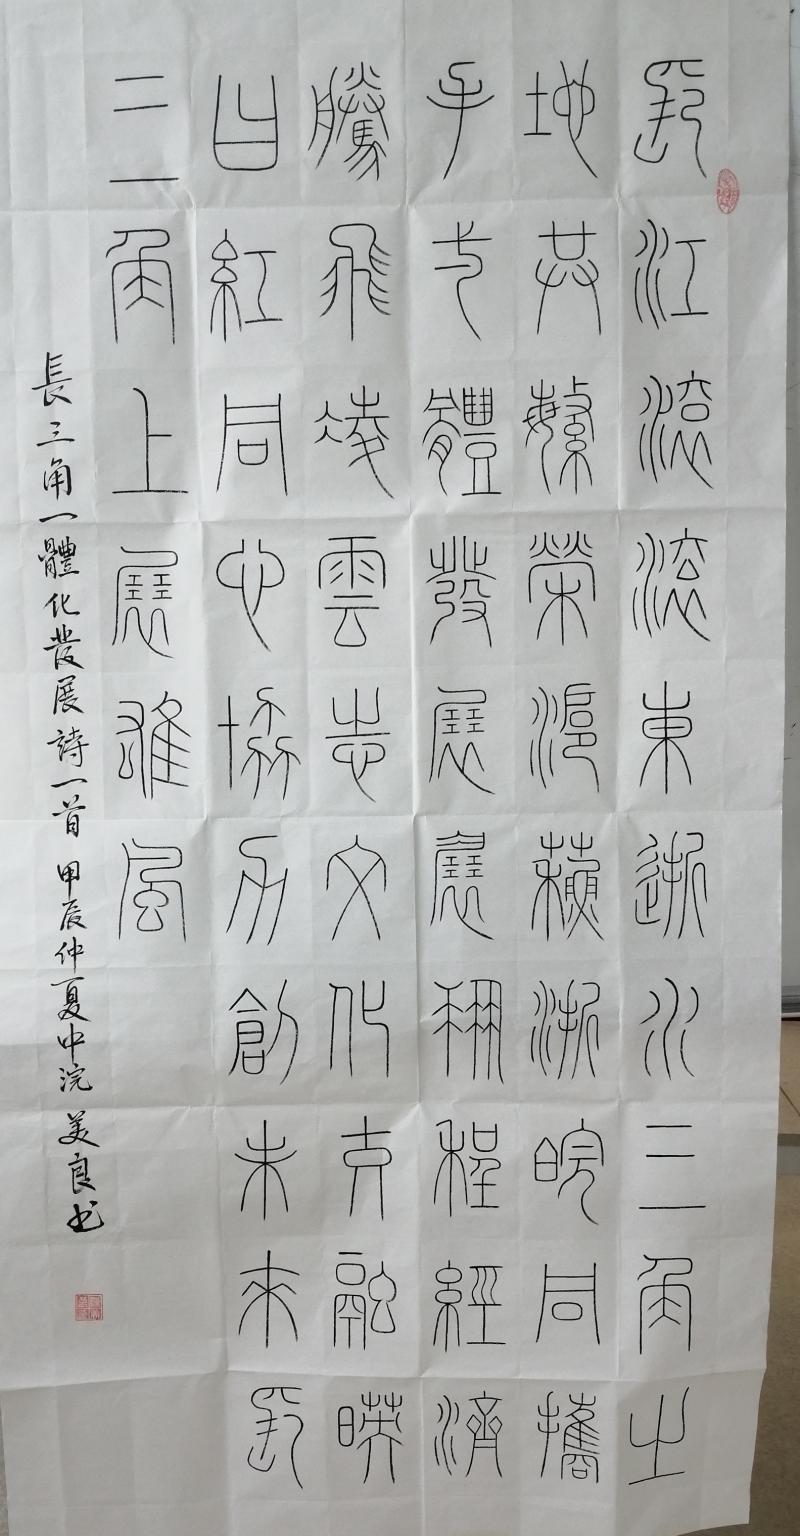 長江滾滾東逝水三角之
地共繁榮滬蘇浙皖同攜
手弌體發展展程經濟
騰飛凌雲志文化交融暎
日紅同心協力創未來長
三角上展雄風
長三角一體化發展詩一首 甲辰仲夏中浣 美良书